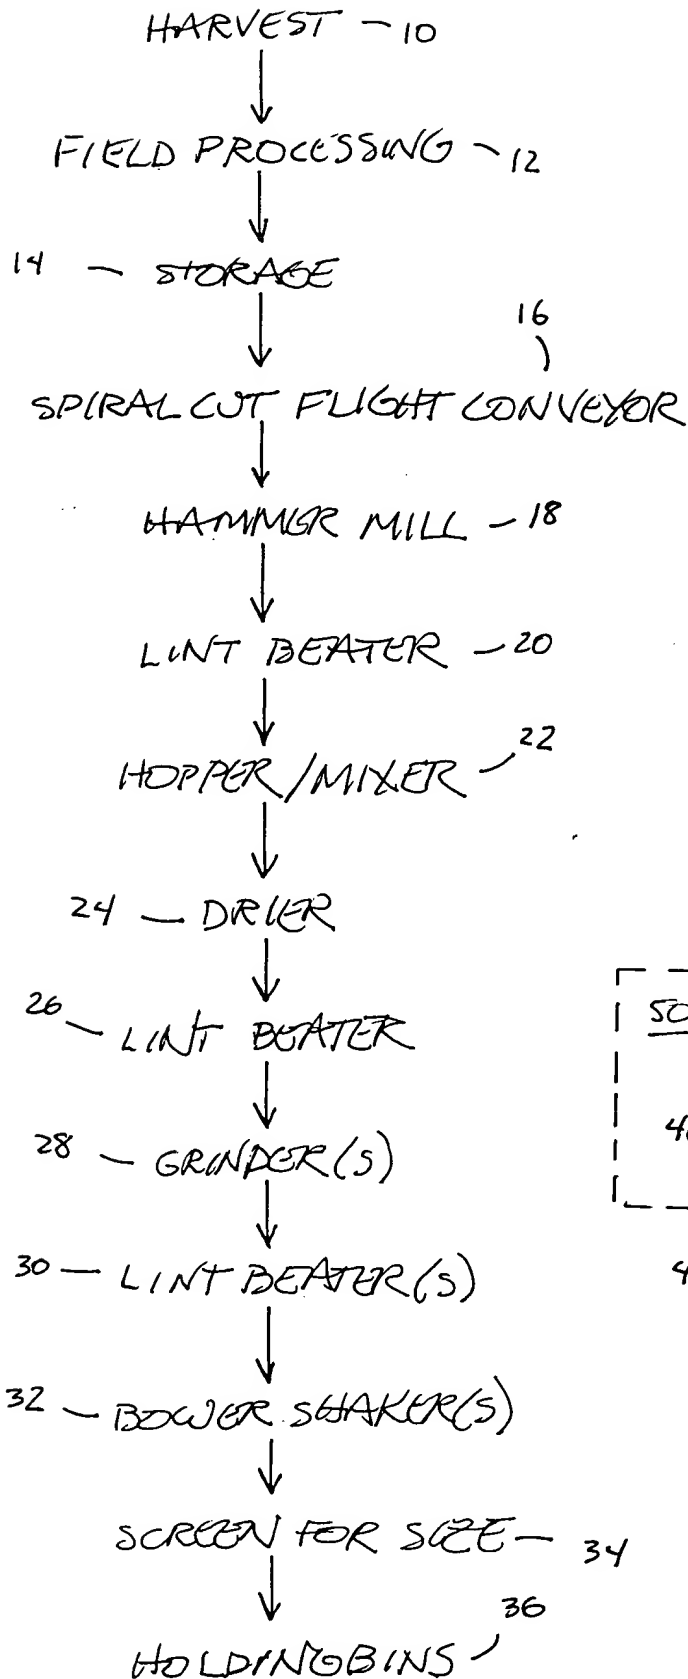 HARVEST - 10
FIELD PROCESSING ~ 12
14 - STORAGE
16
SPIRAL CUT FLIGHT CONVEYOR
HAMMER MILL - 18
LINT BEATER - 20
HOPPER/MIXER - 22
24 - DRIER
26 - LINT BEATER
50
28 - GRINDER(S)
30 - LINT BEATER(S)
32 - BOWER SHAKER(S)
SCREEN FOR SIZE - 34
36
HOLDING BINS